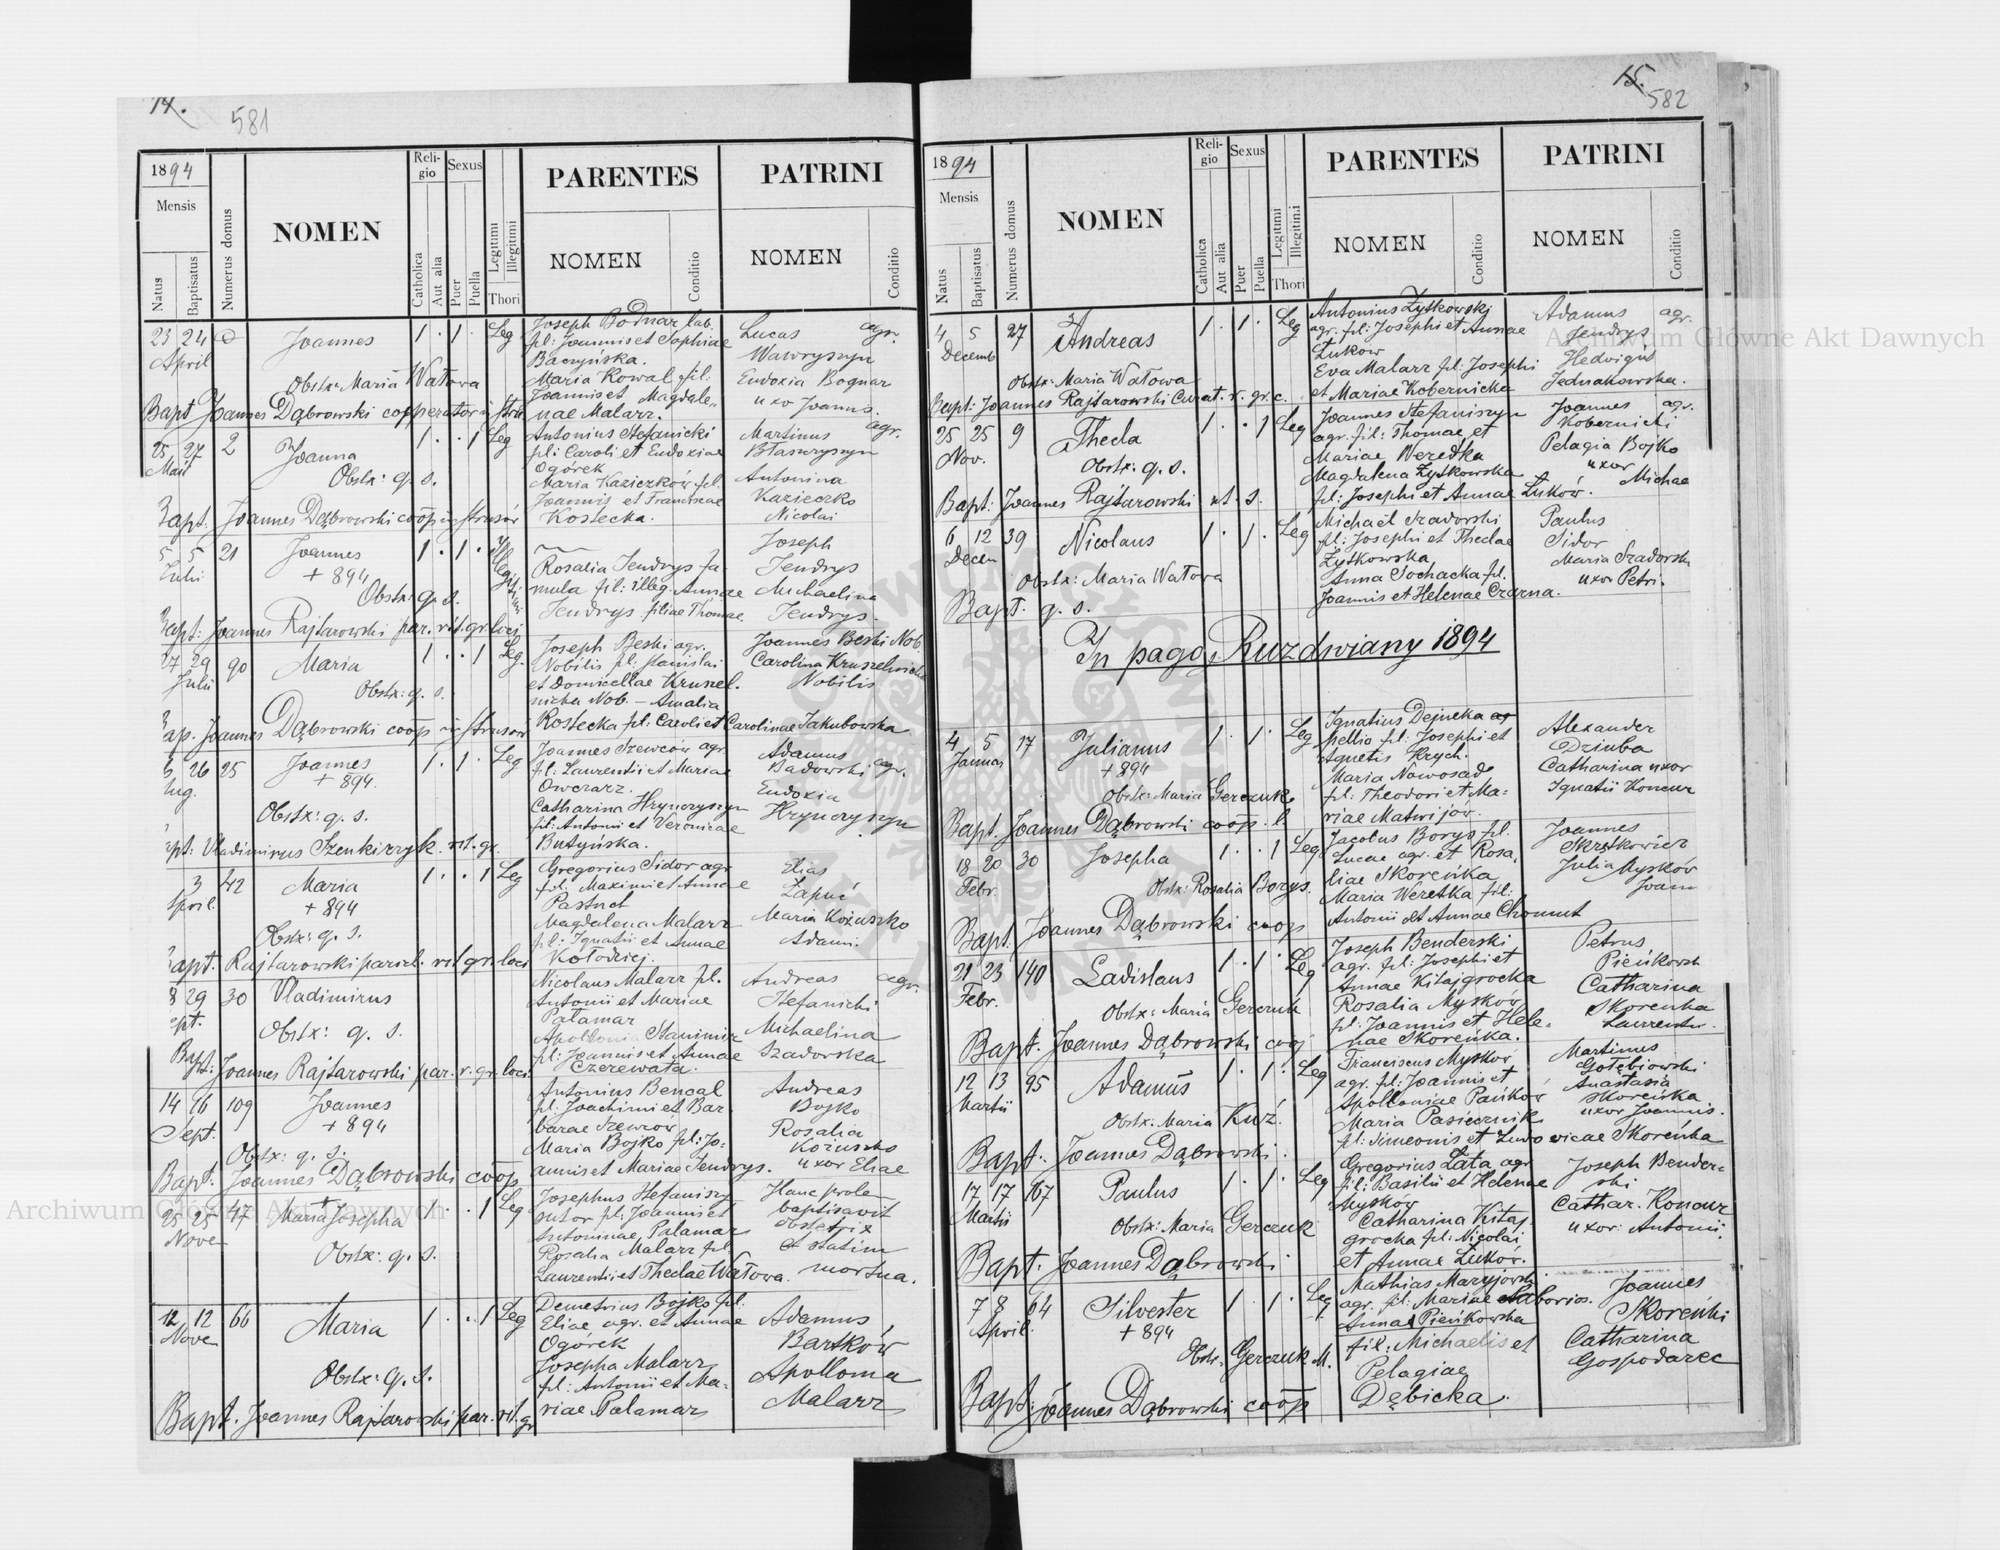 14.
581
1894
Mensis
Natus
Baptisatus
Numerus domus
NOMEN
Religio
Catholica
Aut alia
Sexus
Puer
Puella
Legitimi
Illegitimi
Thori
PARENTES
NOMEN
Conditio
PATRINI
NOMEN
Conditio
23 24
April
Joannes
1 . 1 . Leg
Obstx: Maria Watowa
Bapt Joannes Dąbrowski cooperator in Strus
Joseph Bodnar lab.
fil: Joannis et Sophiae
Baczyńska.
Maria Kowal fil:
Joannis et Magdale„
nae Malarz.
Lucas agr.
Wawryszyn
Eudoxia Bognar
uxo Joannis.
25 27 2
Maii
Joanna
1 . . 1 Leg
Obstx: q. s.
Bapt. Joannes Dąbrowski coop in Strusów
Antonius Stefanicki
fil: Caroli et Eudoxiae
Ogórek
Maria Kazieczków fil.
Joannis et Franciscae
Kostecka.
Martinus agr.
Błaszczyszyn
Antonina
Kazieczko
Nicolai
5 5 21
Julii
Joannes
+ 894
1 . 1 . Illegitimi
Obstx: q. s.
Bapt: Joannes Rajtarowski par. rit. gr. loci
Rosalia Jendrys fa-
mula fil: illeg. Annae
Jendrys filiae Thomae.
Joseph
Jendrys
Michaelina
Jendrys.
27 29 90
Julii
Maria
1 . . 1 Leg.
Obstx: q. s.
Bap. Joannes Dąbrowski coop in Strusów
Joseph Beski agr.
Nobilis fil: Stanislai
et Domicellae Kruszel.
nicka Nob. - Amalia
Kostecka fil: Caroli et Carolinae Jakubowska
Joannes Beski Nob.
Carolina Kruszelnicka
Nobilis
26 25
Aug.
Joannes
+ 894.
1 . 1 . Leg
Obstx: q. s.
Bapt: Vladimirus Szenkirzyk. rit. gr.
Joannes Szewców agr
fil: Laurentii et Mariae
Owczarz.
Catharina Hrynczyszyn
fil: Antonii et Veronicae
Butyńska.
Adamus
Badowski agr.
Eudoxia
Hrynczyszyn
3 42
April
Maria
+ 894
1 . . 1 Leg
Obstx: q. s.
Bapt. Rajtarowski paroch. rit gr. loci
Gregorius Sidor agr
fil: Maximi et Annae
Pastuch
Magdalena Malarz
fil: Ignatii et Annae
Kołodziej.
Elias
Łapuć
Maria Kożuszko
Adami.
8 29 30
Sept.
Vladimirus
Obstx: q. s.
Bapt: Joannes Rajtarowski par. r. gr. loci
Nicolaus Malarz fil.
Antonii et Mariae
Pałamar
Apollonia Stanimir
fil: Joannis et Annae
Czerewata.
Andreas agr.
Stefanicki
Michaelina
Szadorska
14 16 109
Sept.
Joannes
+ 894
Obstx: q. s.
Bapt. Joannes Dąbrowski coop
Antonius Bencal
fil: Joachimi et Bar.
barae Szewców
Maria Bojko fil: Jo-
annis et Mariae Jendrys.
Andreas
Bojko
Rosalia
Kożuszko
uxor Eliae
25 25 47
Nove
Maria Josepha
1 . . 1 Leg
Obstx: q. s.
Josephus Stefaniszy
sutor fil: Joannis et
Antoninae Pałamar
Rosalia Malarz fil.
Laurentii et Theclae Watowa.
Hanc prole
baptisavit
obstetrix
et statim
mortua.
12 12 66
Nove
Maria
1 . . 1 Leg
Obstx: q. s.
Bapt. Joannes Rajtarowski par. rit. gr
Demetrius Bojko fil.
Eliae agr. et Annae
Ogórek
Josepha Malarz
fil: Antonii et Ma-
riae Pałamarz
Adamus
Bartków
Apollonia
Malarz
15.
582
1894
Mensis
Natus
Baptisatus
Numerus domus
NOMEN
Religio
Catholica
Aut alia
Sexus
Puer
Puella
Legitimi
Illegitimi
Thori
PARENTES
NOMEN
Conditio
PATRINI
NOMEN
Conditio
4 5 27
Decemb
Andreas
1 . 1 . Leg
Obstx: Maria Watowa
Bapt: Joannes Rajtarowski Curat. r. gr. c.
Antonius Żytkowski
agr. fil: Josephi et Annae
Łuków
Eva Malarz fil: Josephi
et Mariae Kobernicka
Adamus agr.
Jendrys
Hedvigis
Jednakowska.
25 25 9
Nov.
Thecla
1 . . 1 Leg
Obstx: q. s.
Bapt: Joannes Rajtarowski ut. s.
Joannes Stefaniszyn
agr. fil: Thomae et
Mariae Weretka
Magdalena Żytkowska
fil: Josephi et Annae Łuków.
Joannes agr.
Kobernicki
Pelagia Bojko
uxor
Michae
6 12 39
Decem
Nicolaus
1 . 1 . Leg
Obstx: Maria Watowa
Bapt. q. s.
Michael Szadorski
fil: Josephi et Theclae
Żytkowska
Anna Sochacka fil.
Joannis et Helenae Czarna.
Paulus
Sidor
Maria Szadorska
uxor Petri.
In pago Ruzdwiany 1894
4 5 17
Januar
Julianus
+ 894
1 . 1 . Leg
Obstx: Maria Gerczuk
Bapt. Joannes Dąbrowski coop. l.
Ignatius Dejneka ag
pellio fil: Josephi et
Agnetis Krych.
Maria Nowosad
fil: Theodori et Ma=
riae Matwijów.
Alexander
Dziuba
Catharina uxor
Ignatii Koncur
18 20 30
Febr.
Josepha
1 . . 1 Leg
Obstx: Rosalia Borys.
Bapt. Joannes Dąbrowski coop
Jacobus Borys fil.
Lucae agr. et Rosa.
liae Skoreńka
Maria Weretka fil:
Antonii et Annae Chomut
Joannes
Skrętkowicz
Julia Mysków
Joann
21 23 140
Febr.
Ladislaus
1 . 1 . Leg
Obstx: Maria Gerczuk
Bapt. Joannes Dąbrowski coop
Joseph Benderski
agr. fil: Josephi et
Annae Kitajgrocka
Rosalia Mysków
fil: Joannis et Hele=
nae Skoreńka.
Petrus
Pieńkowsk
Catharina
Skorenka
Laurentii.
12 13 95
Martii
Adamus
1 . 1 . Leg
Obstx: Maria Kuź.
Bapt. Joannes Dąbrowski.
Franciscus Mysków
agr. fil: Joannis et
Apolloniae Pańków
Maria Pasiecznik
fil: Simeonis et Ludovicae Skoreńka
Martinus
Gołębiowski
Anastasia
Skoreńka
uxor Joannis.
17 17 167
Martii
Paulus
1 . 1 . Leg
Obstx: Maria Gerczuk
Bapt. Joannes Dąbrowski
Gregorius Łata agr
fil: Basilii et Helenae
Mysków
Catharina Kitaj.
grocka fil: Nicolai
et Annae Łuków.
Joseph Bender=
ski
Cathar. Koncur
uxor: Antonii.
7 8 64
April.
Silvester
+ 894
1 . 1 . Leg
Obstx. Gerczuk M.
Bapt: Joannes Dąbrowski coop
Mathias Maryjowski
agr. fil: Mariae
Anna Pieńkowska
fil: Michaelis et
Pelagiae
Dębicka.
Joannes
Skoreńki
Catharina
Gospodarec
Archiwum Główne Akt Dawnych
Archiwum Główne Akt Dawnych